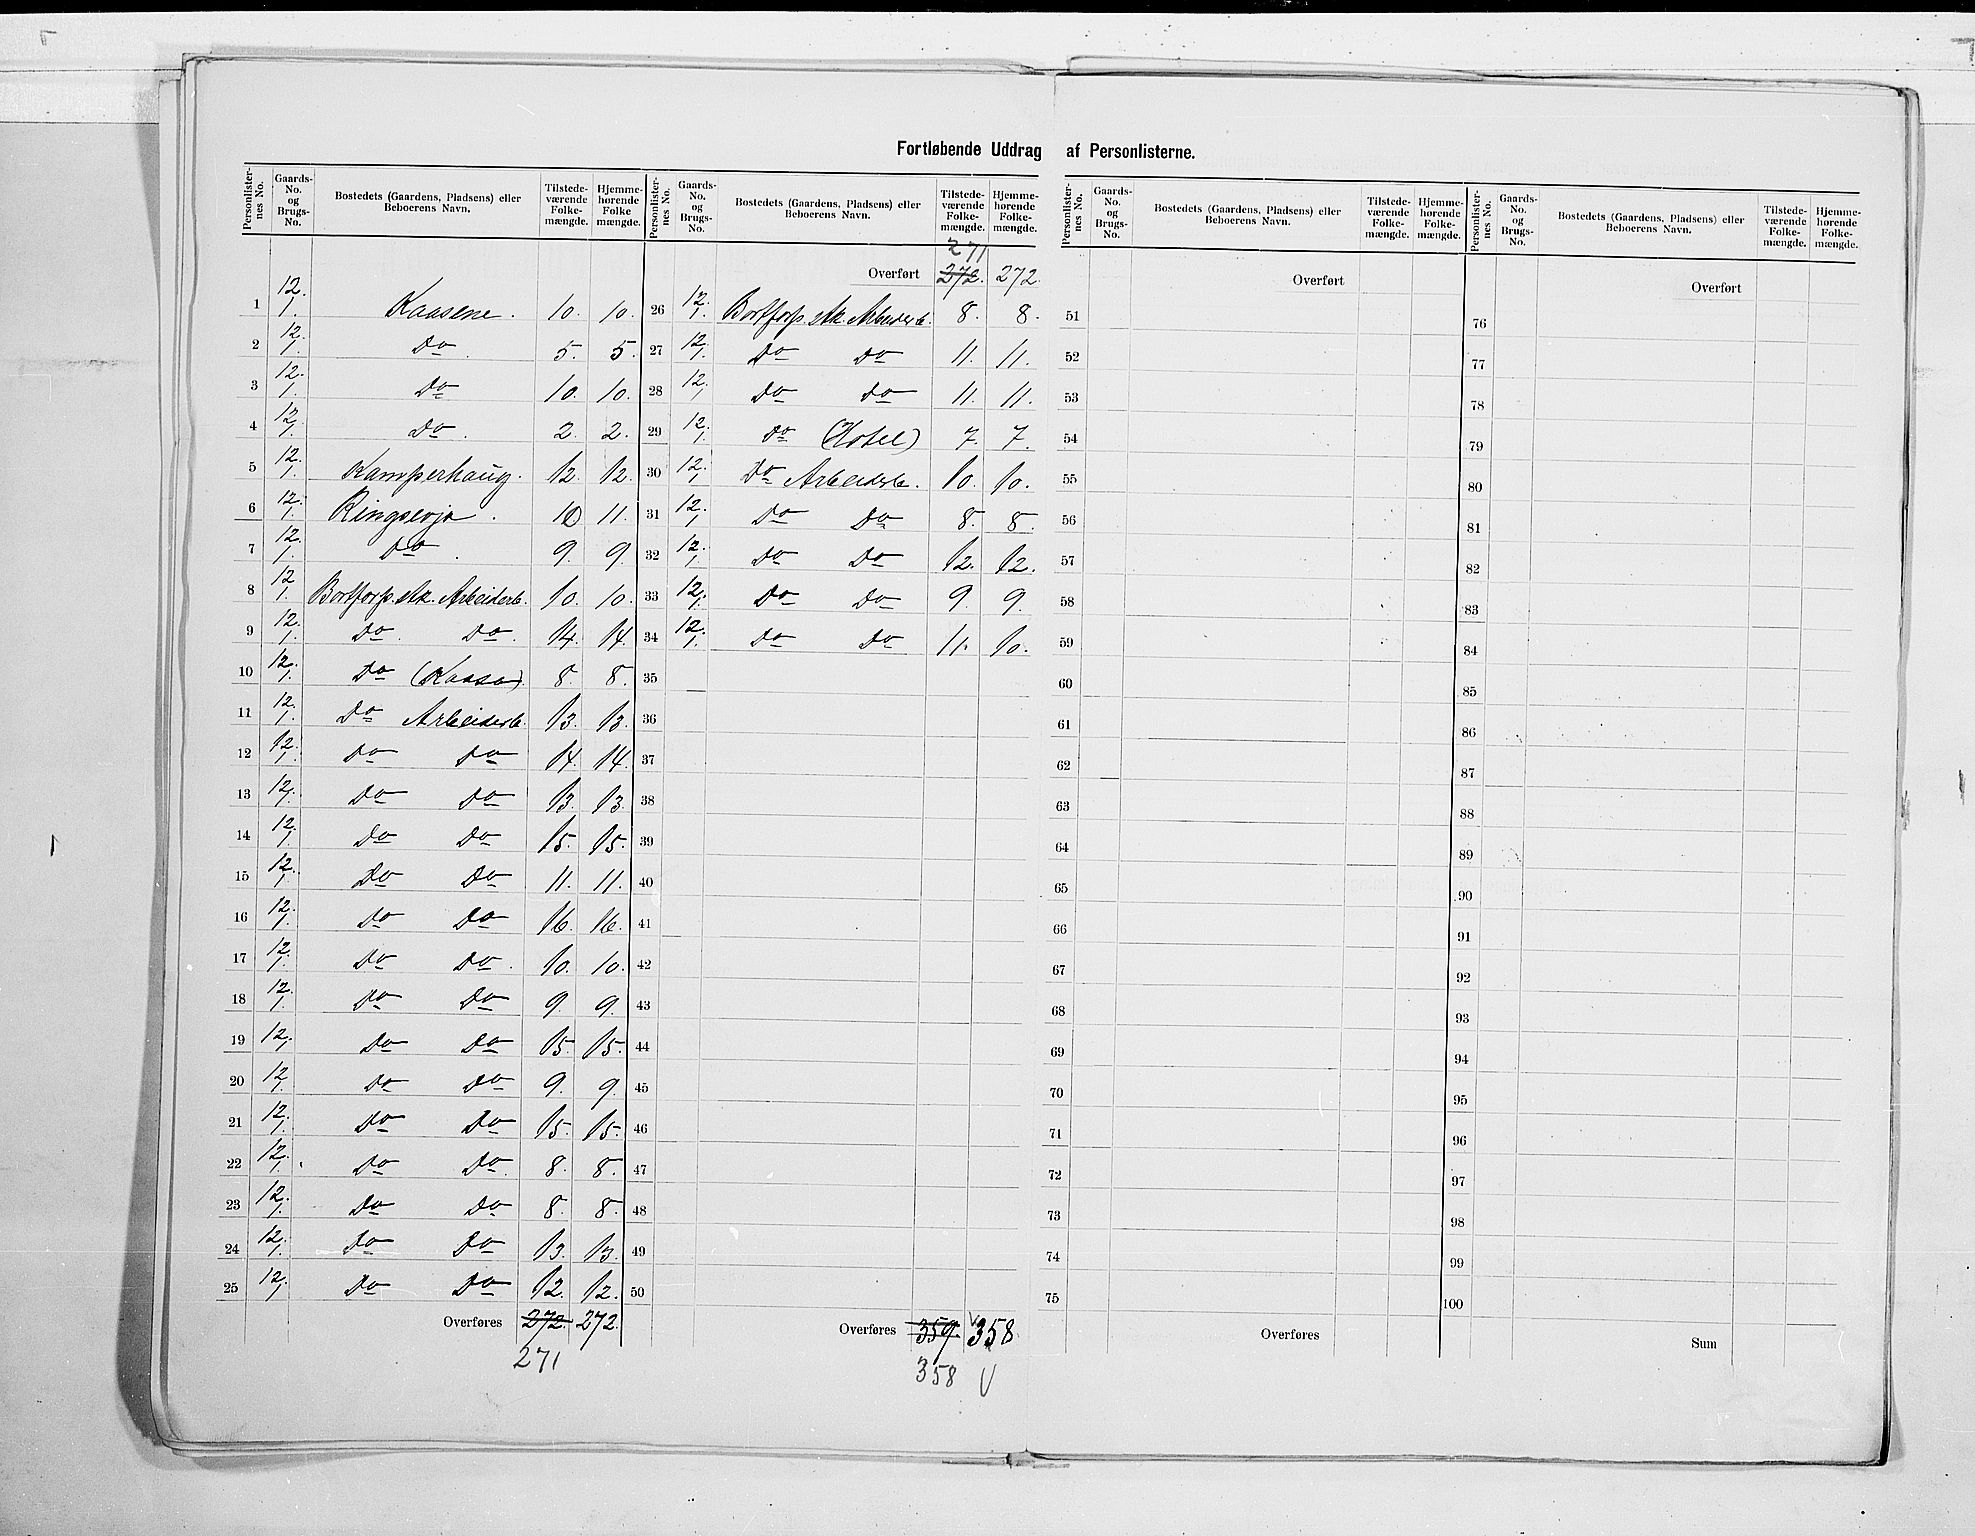 Fortløbende Uddrag af Personlisterne.
Personlister-nes No. | Gaards-No. og Brugs-No. | Bostedets (Gaardens, Pladsens) eller Beboerens Navn. | Tilstede-værende Folke-mængde. | Hjemme-hørende Folke mængde.
1 12./1. Kaasene. 10. 10.
2 12./1. Do. 5. 5.
3 12./1. Do 10. 10.
4 12./1. Do. 2. 2.
5 12./1. Kamperhaug. 12. 12.
6 12./1. Ringsevja. 10 11.
7 12./1. Do. 9. 9.
8 12/1 Bortforp. stk. Arbeiderb. 10. 10.
9 12./1. Do. Do. 14. 14.
10 12./1. Do (Kaasa). 8. 8.
11 12./1. Do Arbeiderb. 13. 13.
12 12./1. Do Do 14. 14.
13 12./1. Do Do 13. 13.
14 12./1. Do Do 15. 15.
15 12./1. Do Do 11. 11.
16 12./1. Do Do 16. 16.
17 12./1. Do Do. 10. 10.
18 12./1. Do Do 9. 9.
19 12./1. Do Do 15. 15.
20 12/1. Do Do 9. 9.
21 12./1. Do Do 15. 15.
22 12./1. Do Do. 8. 8.
23 12./1. Do Do 8. 8.
24 12./1. Do Do 13. 13.
25 12./1 Do Do 12. 12.
Overføres 272. 272.
271
Personlister-nes No. | Gaards-No. og Brugs-No. | Bostedets (Gaardens, Pladsens) eller Beboerens Navn. | Tilstede-værende Folke-mængde. | Hjemme-hørende Folke-mængde.
271
Overført 272. 272.
26 12./1. Bortforp. stk. Arbeiderb. 8. 8.
27 12./1. Do Do 11. 11.
28 12./1 Do Do 11. 11.
29 12./1. Do (Hotel) 7. 7.
30 12./1 Do Arbeiderb. 10. 10.
31 12./1 Do Do 8. 8.
32 12./1. Do Do 12. 12.
33 12./1. Do Do 9. 9.
34 12./1. Do Do 11. 10.
35
36
37
38
39
40
41
42
43
44
45
46
47
48
49
50
Overføres 359. 358.
358 V
Personlister-nes No. | Gaards-No. og Brugs-No. | Bostedets (Gaardens, Pladsens) eller Beboerens Navn. | Tilstede-værende Folke-mængde. | Hjemme-hørende Folke-mængde.
Overført
51
52
53
54
55
56
57
58
59
60
61
62
63
64
65
66
67
68
69
70
71
72
73
74
75
Overføres
Personlister-nes No. | Gaards-No. og Brugs-No. | Bostedets (Gaardens, Pladsens) eller Beboerens Navn. | Tilstede-værende Folke-mængde. | Hjemme-hørende Folke-mængde.
Overført
76
77
78
79
80
81
82
83
84
85
86
87
88
89
90
91
92
93
94
95
96
97
98
99
100
Sum